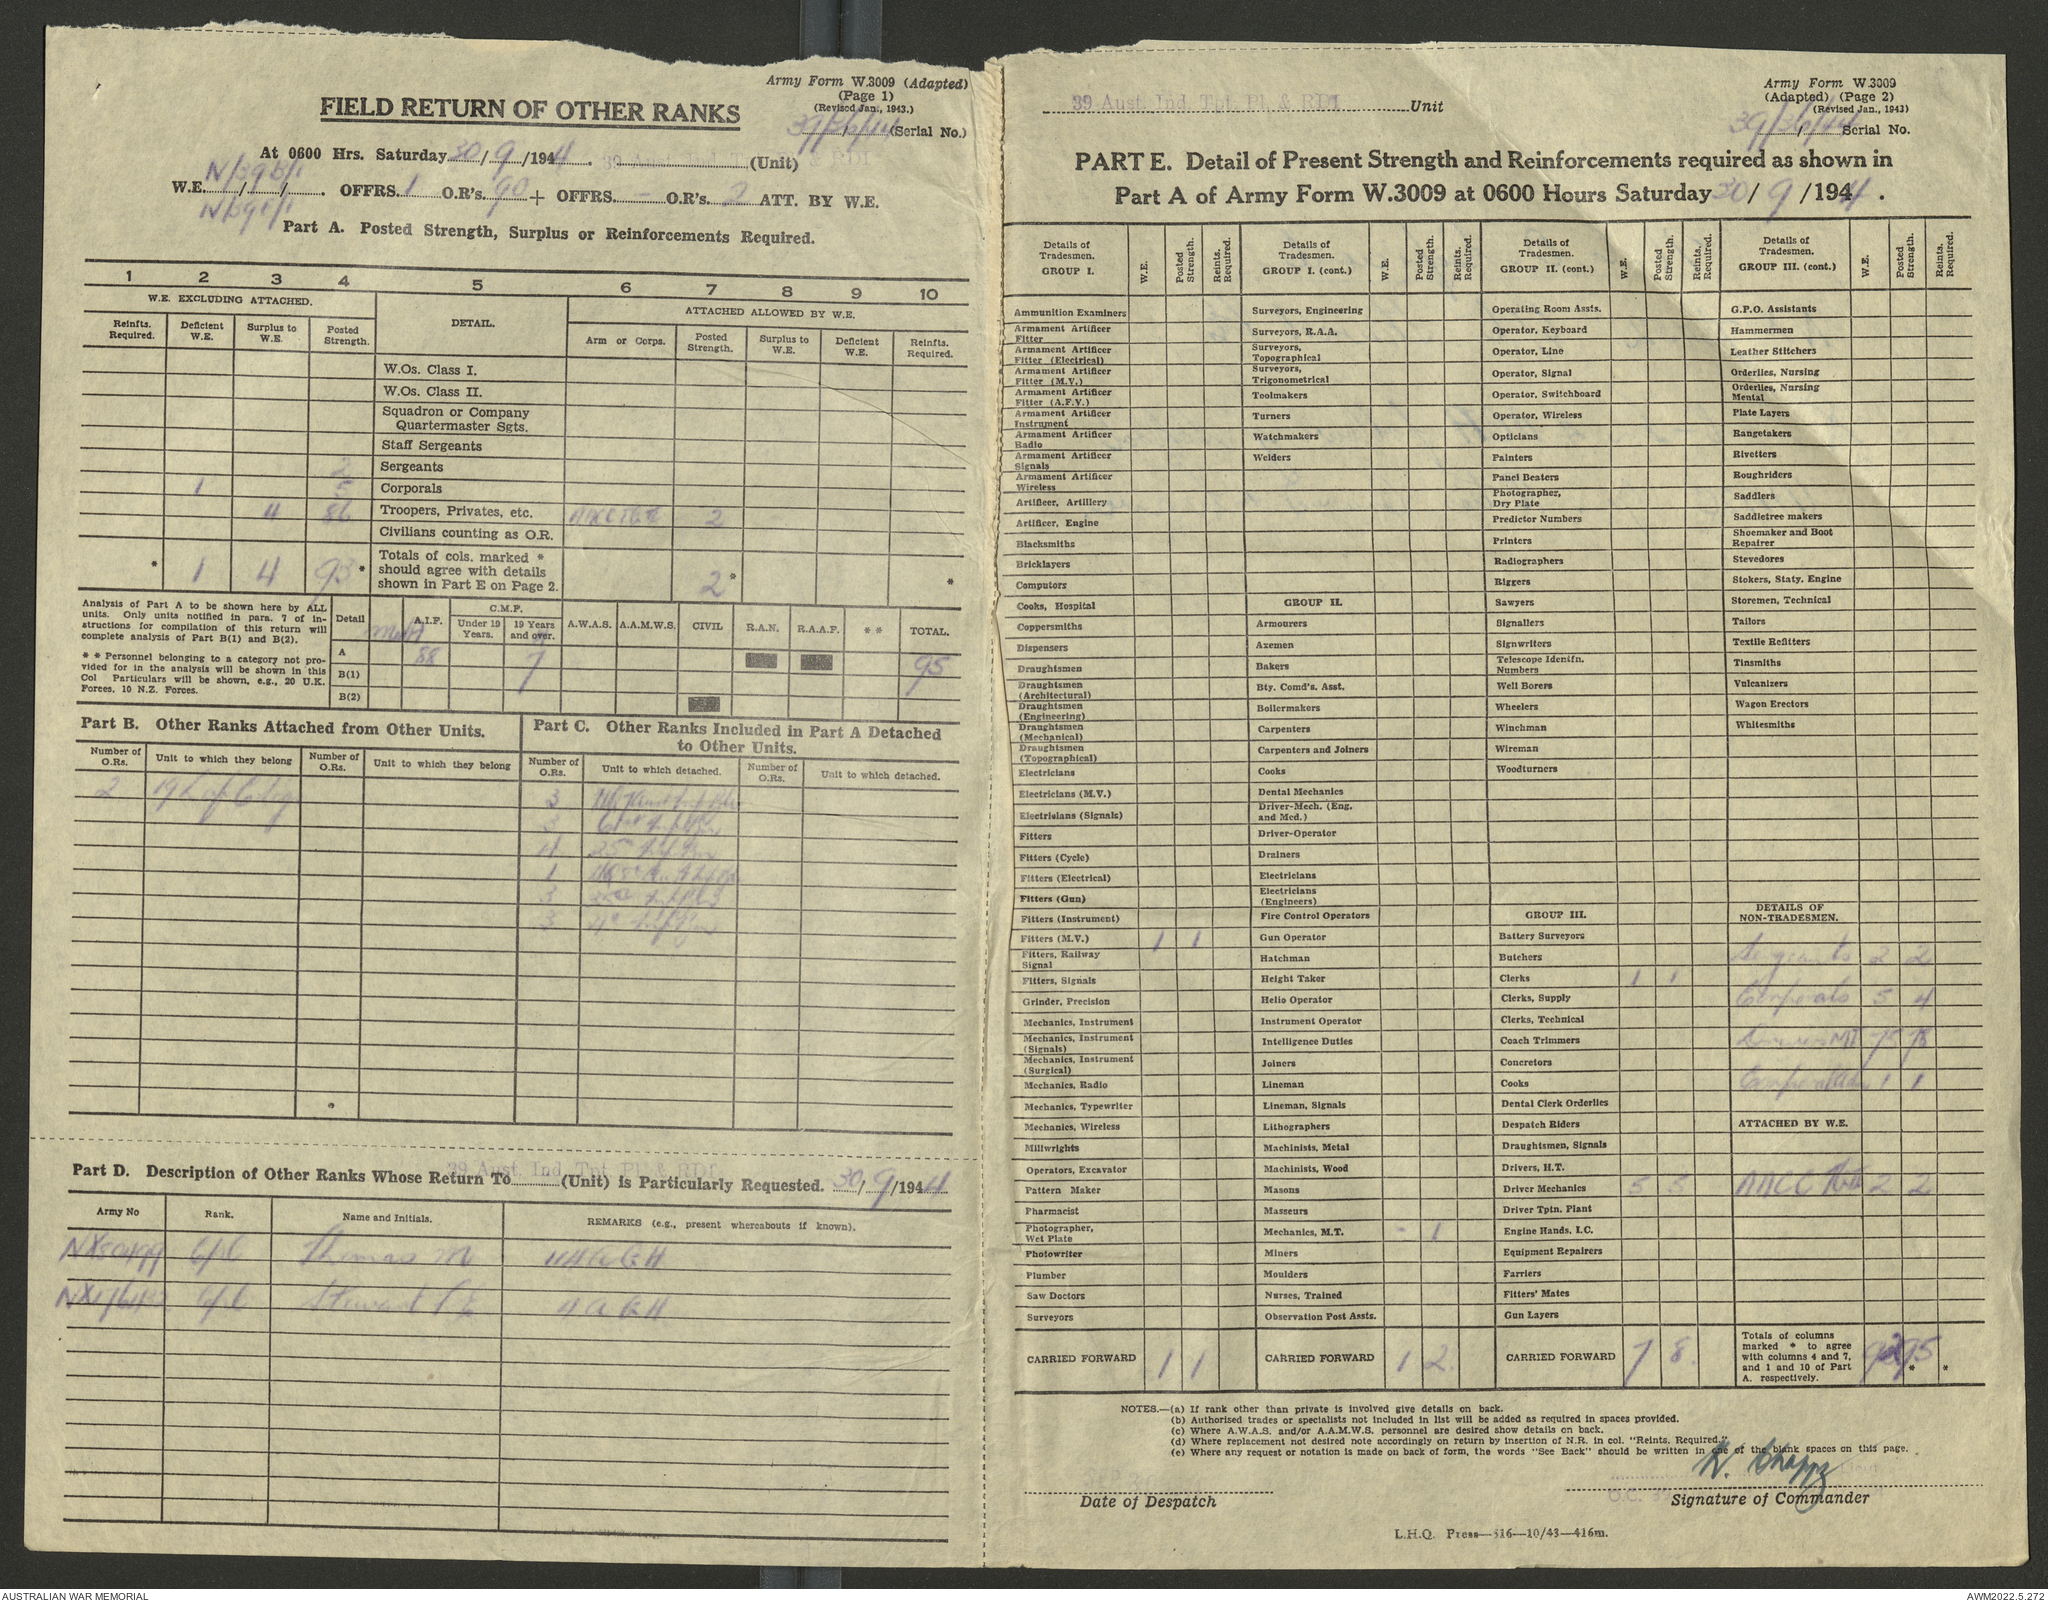 Army Form W.3009 (Adapted)
(Page 1)
(Revised Jan., 1943.)
FIELD RETURN OF OTHER RANKS
39/36/44 (Serial No.)
At 0600 Hrs. Saturday 30/9/1944. 39 Aust. Ind. Tpt. Pl. & RDI (Unit)
W.E. / / . OFFRS. 1 O.R's. 90 + OFFRS. - O.R's. 2 ATT. BY W.E.
Part A. Posted Strength, Surplus or Reinforcements Required.
1 2 3 4 5 6 7 8 9 10
W.E. EXCLUDING ATTACHED. DETAIL. ATTACHED ALLOWED BY W.E.
Reinfts. Required. Deficient W.E. Surplus to W.E. Posted Strength. Arm or Corps. Posted Strength. Surplus to W.E. Deficient W.E. Reinfts. Required.
W.Os. Class I.
W.Os. Class II.
Squadron or Company
Quartermaster Sgts.
Staff Sergeants
2 Sergeants
1 5 Corporals
4 86 Troopers, Privates, etc. AACC 2
Civilians counting as O.R.
* 1 4 93 * Totals of cols. marked *
should agree with details
shown in Part E on Page 2. 2 * *
Analysis of Part A to be shown here by ALL
units. Only units notified in para. 7 of in-
structions for compilation of this return will
complete analysis of Part B(1) and B(2).
* * Personnel belonging to a category not pro-
vided for in the analysis will be shown in this
Col Particulars will be shown, e.g., 20 U.K.
Forces, 10 N.Z. Forces.
Detail A.I.F. C.M.F. Under 19 Years. 19 Years and over. A.W.A.S. A.A.M.W.S. CIVIL R.A.N. R.A.A.F. * * TOTAL.
A 88 7 95
B(1)
B(2)
Part B. Other Ranks Attached from Other Units.
Number of O.Rs. Unit to which they belong Number of O.Rs. Unit to which they belong
2
Part C. Other Ranks Included in Part A Detached
to Other Units.
Number of O.Rs. Unit to which detached. Number of O.Rs. Unit to which detached.
3
3
4
1
3
3
Part D. Description of Other Ranks Whose Return To 39 Aust. Ind. Tpt. Pl. & RDI (Unit) is Particularly Requested. 30/9/1944
Army No Rank. Name and Initials. REMARKS (e.g., present whereabouts if known).
Cpl Thomas M
Cpl Steward 4 A G H
39 Aust. Ind. Tpt. Pl. & RDI Unit
Army Form W.3009
(Adapted) (Page 2)
(Revised Jan., 1943)
39/36/44 Serial No.
PART E. Detail of Present Strength and Reinforcements required as shown in
Part A of Army Form W.3009 at 0600 Hours Saturday 30/9/1944.
Details of Tradesmen. GROUP I. W.E. Posted Strength. Reints. Required.
Ammunition Examiners
Armament Artificer Fitter
Armament Artificer Fitter (Electrical)
Armament Artificer Fitter (M.V.)
Armament Artificer Fitter (A.F.V.)
Armament Artificer Instrument
Armament Artificer Radio
Armament Artificer Signals
Armament Artificer Wireless
Artificer, Artillery
Artificer, Engine
Blacksmiths
Bricklayers
Computors
Cooks, Hospital
Coppersmiths
Dispensers
Draughtsmen
Draughtsmen (Architectural)
Draughtsmen (Engineering)
Draughtsmen (Mechanical)
Draughtsmen (Topographical)
Electricians
Electricians (M.V.)
Electrisians (Signals)
Fitters
Fitters (Cycle)
Fitters (Electrical)
Fitters (Gun)
Fitters (Instrument)
Fitters (M.V.) 1 1
Fitters, Railway Signal
Fitters, Signals
Grinder, Precision
Mechanics, Instrument
Mechanics, Instrument (Signals)
Mechanics, Instrument (Surgical)
Mechanics, Radio
Mechanics, Typewriter
Mechanics, Wireless
Millwrights
Operators, Excavator
Pattern Maker
Pharmacist
Photographer, Wet Plate
Photowriter
Plumber
Saw Doctors
Surveyors
CARRIED FORWARD 1 1
Details of Tradesmen. GROUP I. (cont.) W.E. Posted Strength. Reints. Required.
Surveyors, Engineering
Surveyors, R.A.A.
Surveyors, Topographical
Surveyors, Trigonometrical
Toolmakers
Turners
Watchmakers
Welders
GROUP II.
Armourers
Axemen
Bakers
Bty. Comd's. Asst.
Boilermakers
Carpenters
Carpenters and Joiners
Cooks
Dental Mechanics
Driver-Mech. (Eng. and Mcd.)
Driver-Operator
Drainers
Electricians
Electricians (Engineers)
Fire Control Operators
Gun Operator
Hatchman
Height Taker
Helio Operator
Instrument Operator
Intelligence Duties
Joiners
Lineman
Lineman, Signals
Lithographers
Machinists, Metal
Machinists, Wood
Masons
Masseurs
Mechanics, M.T. - 1
Miners
Moulders
Nurses, Trained
Observation Post Assts.
CARRIED FORWARD 1 2
Details of Tradesmen. GROUP II. (cont.) W.E. Posted Strength. Reints. Required.
Operating Room Assts.
Operator, Keyboard
Operator, Line
Operator, Signal
Operator, Switchboard
Operator, Wireless
Opticians
Painters
Panel Beaters
Photographer, Dry Plate
Predictor Numbers
Printers
Radiographers
Riggers
Sawyers
Signallers
Signwriters
Telescope Identfn. Numbers
Well Borers
Wheelers
Winchman
Wireman
Woodturners
GROUP III.
Battery Surveyors
Butchers
Clerks 1 1
Clerks, Supply
Clerks, Technical
Coach Trimmers
Concretors
Cooks
Dental Clerk Orderlies
Despatch Riders
Draughtsmen, Signals
Drivers, H.T.
Driver Mechanics 5 5
Driver Tptn. Plant
Engine Hands, I.C.
Equipment Repairers
Farriers
Fitters' Mates
Gun Layers
CARRIED FORWARD 7 8
Details of Tradesmen. GROUP III. (cont.) W.E. Posted Strength. Reints. Required.
G.P.O. Assistants
Hammermen
Leather Stitchers
Orderlies, Nursing
Orderlies, Nursing Mental
Plate Layers
Rangetakers
Rivetters
Roughriders
Saddlers
Saddletree makers
Shoemaker and Boot Repairer
Stevedores
Stokers, Staty. Engine
Storemen, Technical
Tailors
Textile Refitters
Tinsmiths
Vulcanizers
Wagon Erectors
Whitesmiths
DETAILS OF NON-TRADESMEN.
Sergeants 2 2
Corporals 5 4
Drivers MT 75 78
1 1
ATTACHED BY W.E.
AACC 2 2
Totals of columns
marked * to agree
with columns 4 and 7,
and 1 and 10 of Part
A. respectively. 92 95 * *
NOTES.—(a) If rank other than private is involved give details on back.
(b) Authorised trades or specialists not included in list will be added as required in spaces provided.
(c) Where A.W.A.S. and/or A.A.M.W.S. personnel are desired show details on back.
(d) Where replacement not desired note accordingly on return by insertion of N.R. in col. "Reints. Required."
(e) Where any request or notation is made on back of form, the words "See Back" should be written in one of the blank spaces on this page.
Date of Despatch
Signature of Commander
L.H.Q. Press—516—10/43—416m.
AUSTRALIAN WAR MEMORIAL
AWM2022.5.272